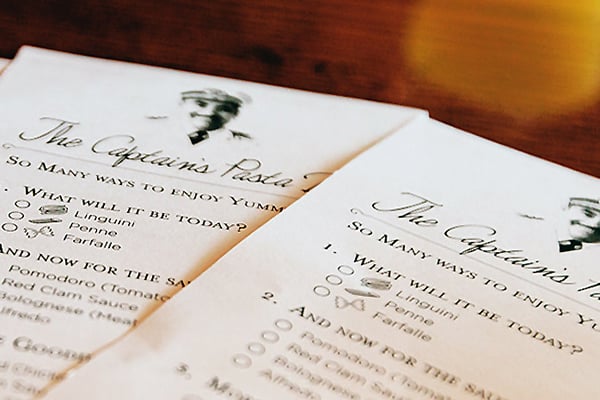 The Captain's Pasta
So Many ways to enjoy Yumm
What will it be today?
Linguini
Penne
Farfalle
And now for the sau
Pomodoro (Tomato
Red Clam Sauce
Bolognese (Meat
Alfredo
The Captain's Pa
So Many ways to enjoy Yu
1. What will it be today?
Linguini
Penne
Farfalle
2. And now for the sau
Pomodoro (Tomat
Red Clam Sauce
Bolognese
Alfredo
3.